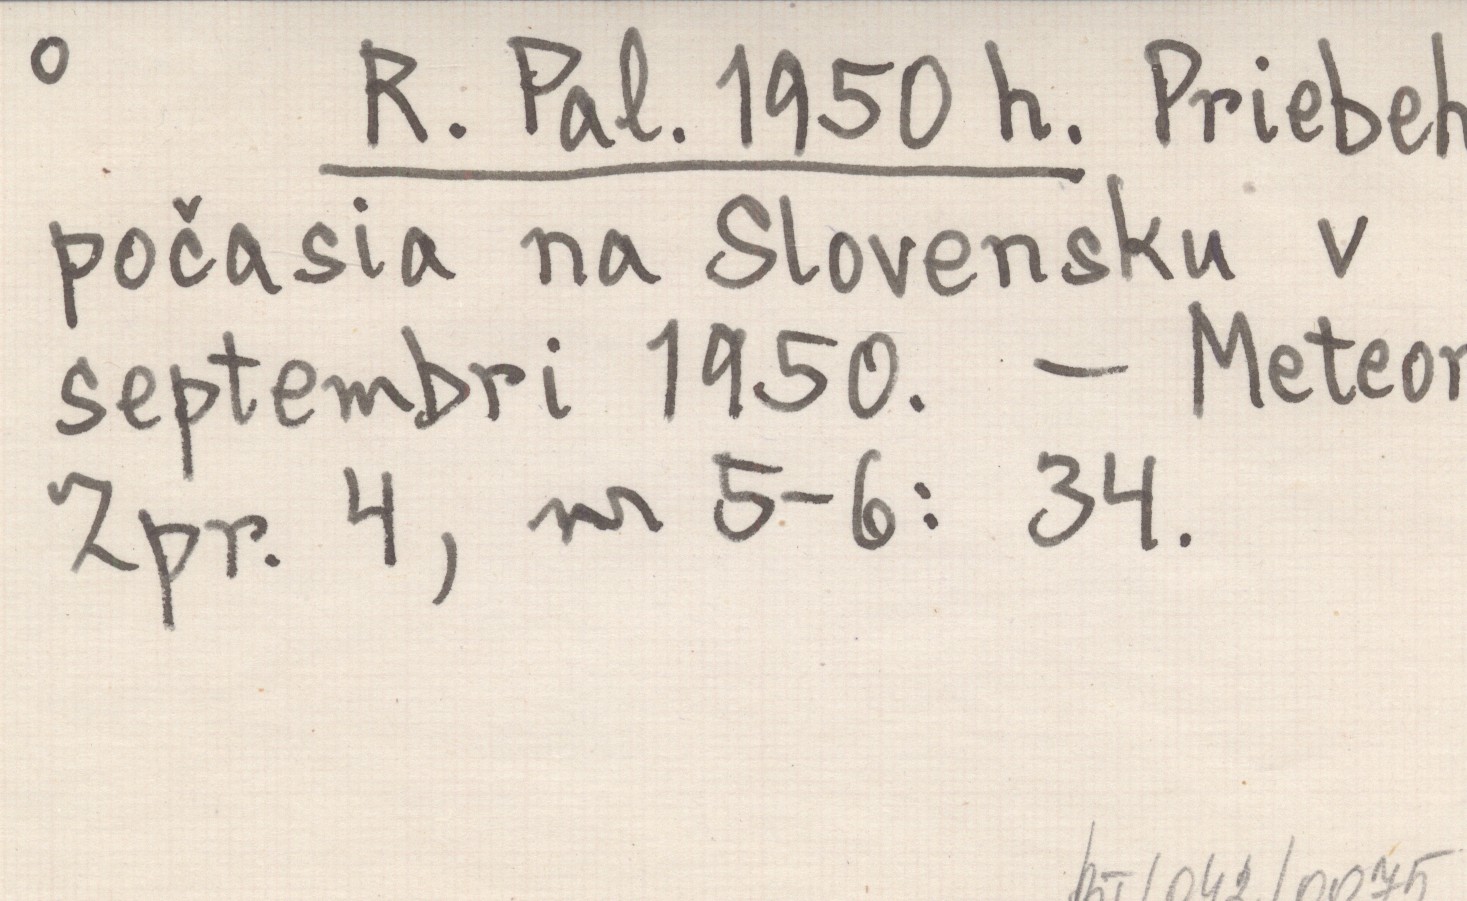 o R. Pal. 1950 h. Priebeh
počasia na Slovensku v
septembri 1950. – Meteor
Zpr. 4, nr 5-6: 34.